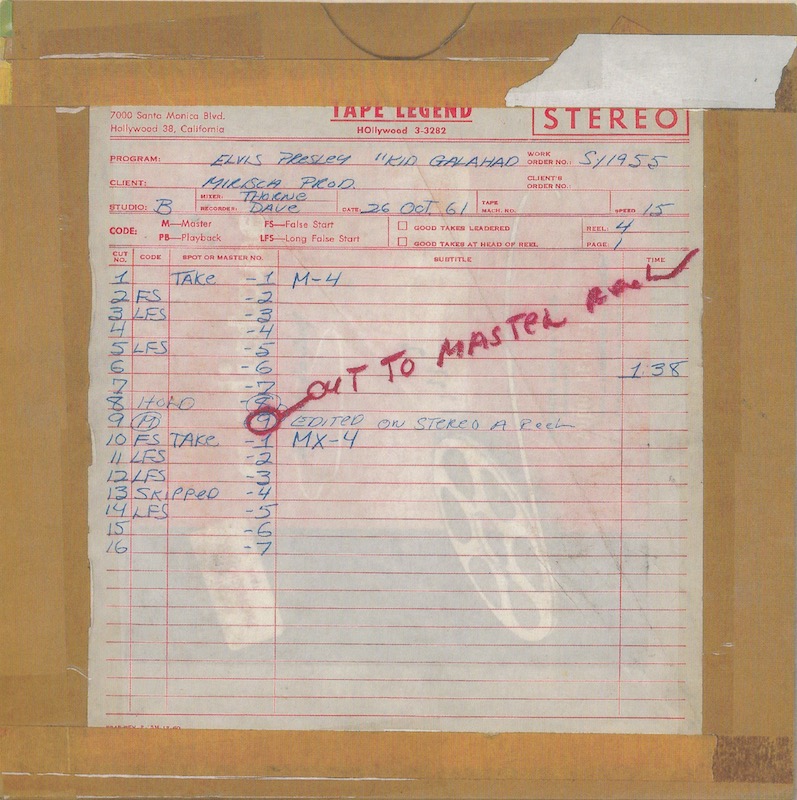 7000 Santa Monica Blvd.
Hollywood 38, California
TAPE LEGEND
HOllywood 3-3282
STEREO
PROGRAM: ELVIS PRESLEY "KID GALAHAD
WORK ORDER NO.: S/1955
CLIENT: MIRISCH PROD.
CLIENT'S ORDER NO.:
STUDIO: B
MIXER: THORNE
RECORDER: DAVE
DATE: 26 OCT. 61
TAPE MACH. NO.
SPEED 15
CODE: M—Master FS—False Start
PB—Playback LFS—Long False Start
GOOD TAKES LEADERED
GOOD TAKES AT HEAD OF REEL
REEL: 4
PAGE: 1
CUT NO. CODE SPOT OR MASTER NO. SUBTITLE TIME
1 TAKE -1 M-4
2 FS -2
3 LFS -3
4 -4
5 LFS -5
6 -6 1:38
7 -7
8 HOLD -8
9 M 9 EDITED ON STEREO A REEL
OUT TO MASTER REEL
10 FS TAKE -1 MX-4
11 LFS -2
12 LFS -3
13 SKIPPED -4
14 LFS -5
15 -6
16 -7